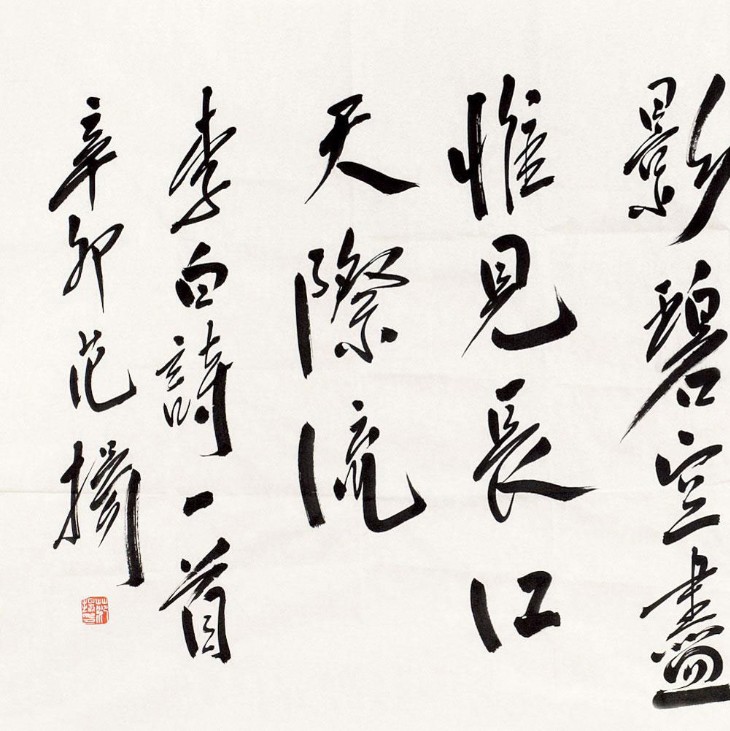 影碧空盡
惟見長江
天際流
李白詩一首
辛卯范揚